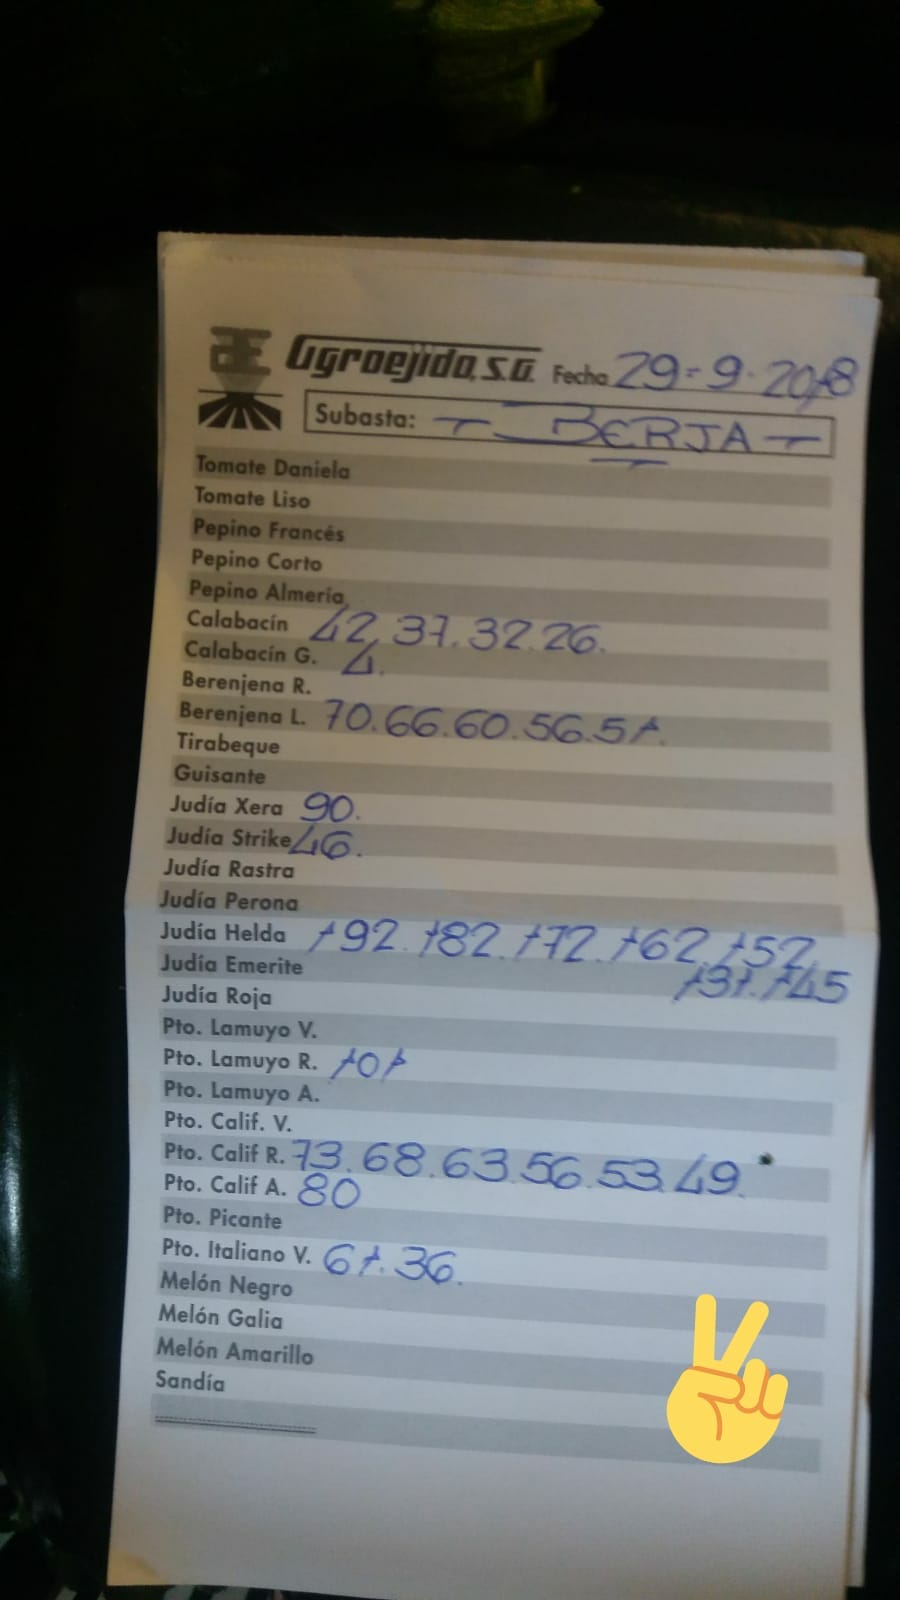 AE Agroejido, S.A. Fecha 29-9-2018
Subasta: - BERJA -
Tomate Daniela
Tomate Liso
Pepino Francés
Pepino Corto
Pepino Almería
Calabacín 42, 37. 32. 26.
Calabacín G. 4.
Berenjena R.
Berenjena L. 70. 66. 60. 56. 51.
Tirabeque
Guisante
Judía Xera 90.
Judía Strike 46.
Judía Rastra
Judía Perona
Judía Helda 192. 182. 172. 162. 152.
Judía Emerite 131. 145
Judía Roja
Pto. Lamuyo V.
Pto. Lamuyo R. 101
Pto. Lamuyo A.
Pto. Calif. V.
Pto. Calif R. 73. 68. 63. 56. 53. 49.
Pto. Calif A. 80
Pto. Picante
Pto. Italiano V. 61. 36.
Melón Negro
Melón Galia
Melón Amarillo
Sandía